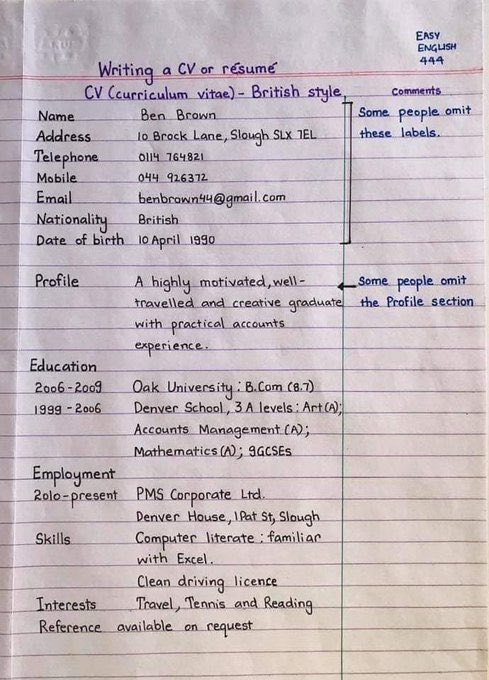 EASY
ENGLISH
444
Writing a CV or résumé
CV (curriculum vitae) - British style
Comments
Name Ben Brown
Some people omit
Address 10 Brock Lane, Slough SLX 7EL
these labels.
Telephone 0114 764821
Mobile 044 926372
Email benbrown44@gmail.com
Nationality British
Date of birth 10 April 1990
Profile A highly motivated, well-
Some people omit
travelled and creative graduate
the Profile section
with practical accounts
experience.
Education
2006-2009 Oak University: B.Com (8.7)
1999 - 2006 Denver School, 3 A levels: Art(A);
Accounts Management (A);
Mathematics (A); 9GCSEs
Employment
2010-present PMS Corporate Ltd.
Denver House, 1 Pat St, Slough
Skills Computer literate: familiar
with Excel.
Clean driving licence
Interests Travel, Tennis and Reading
Reference available on request